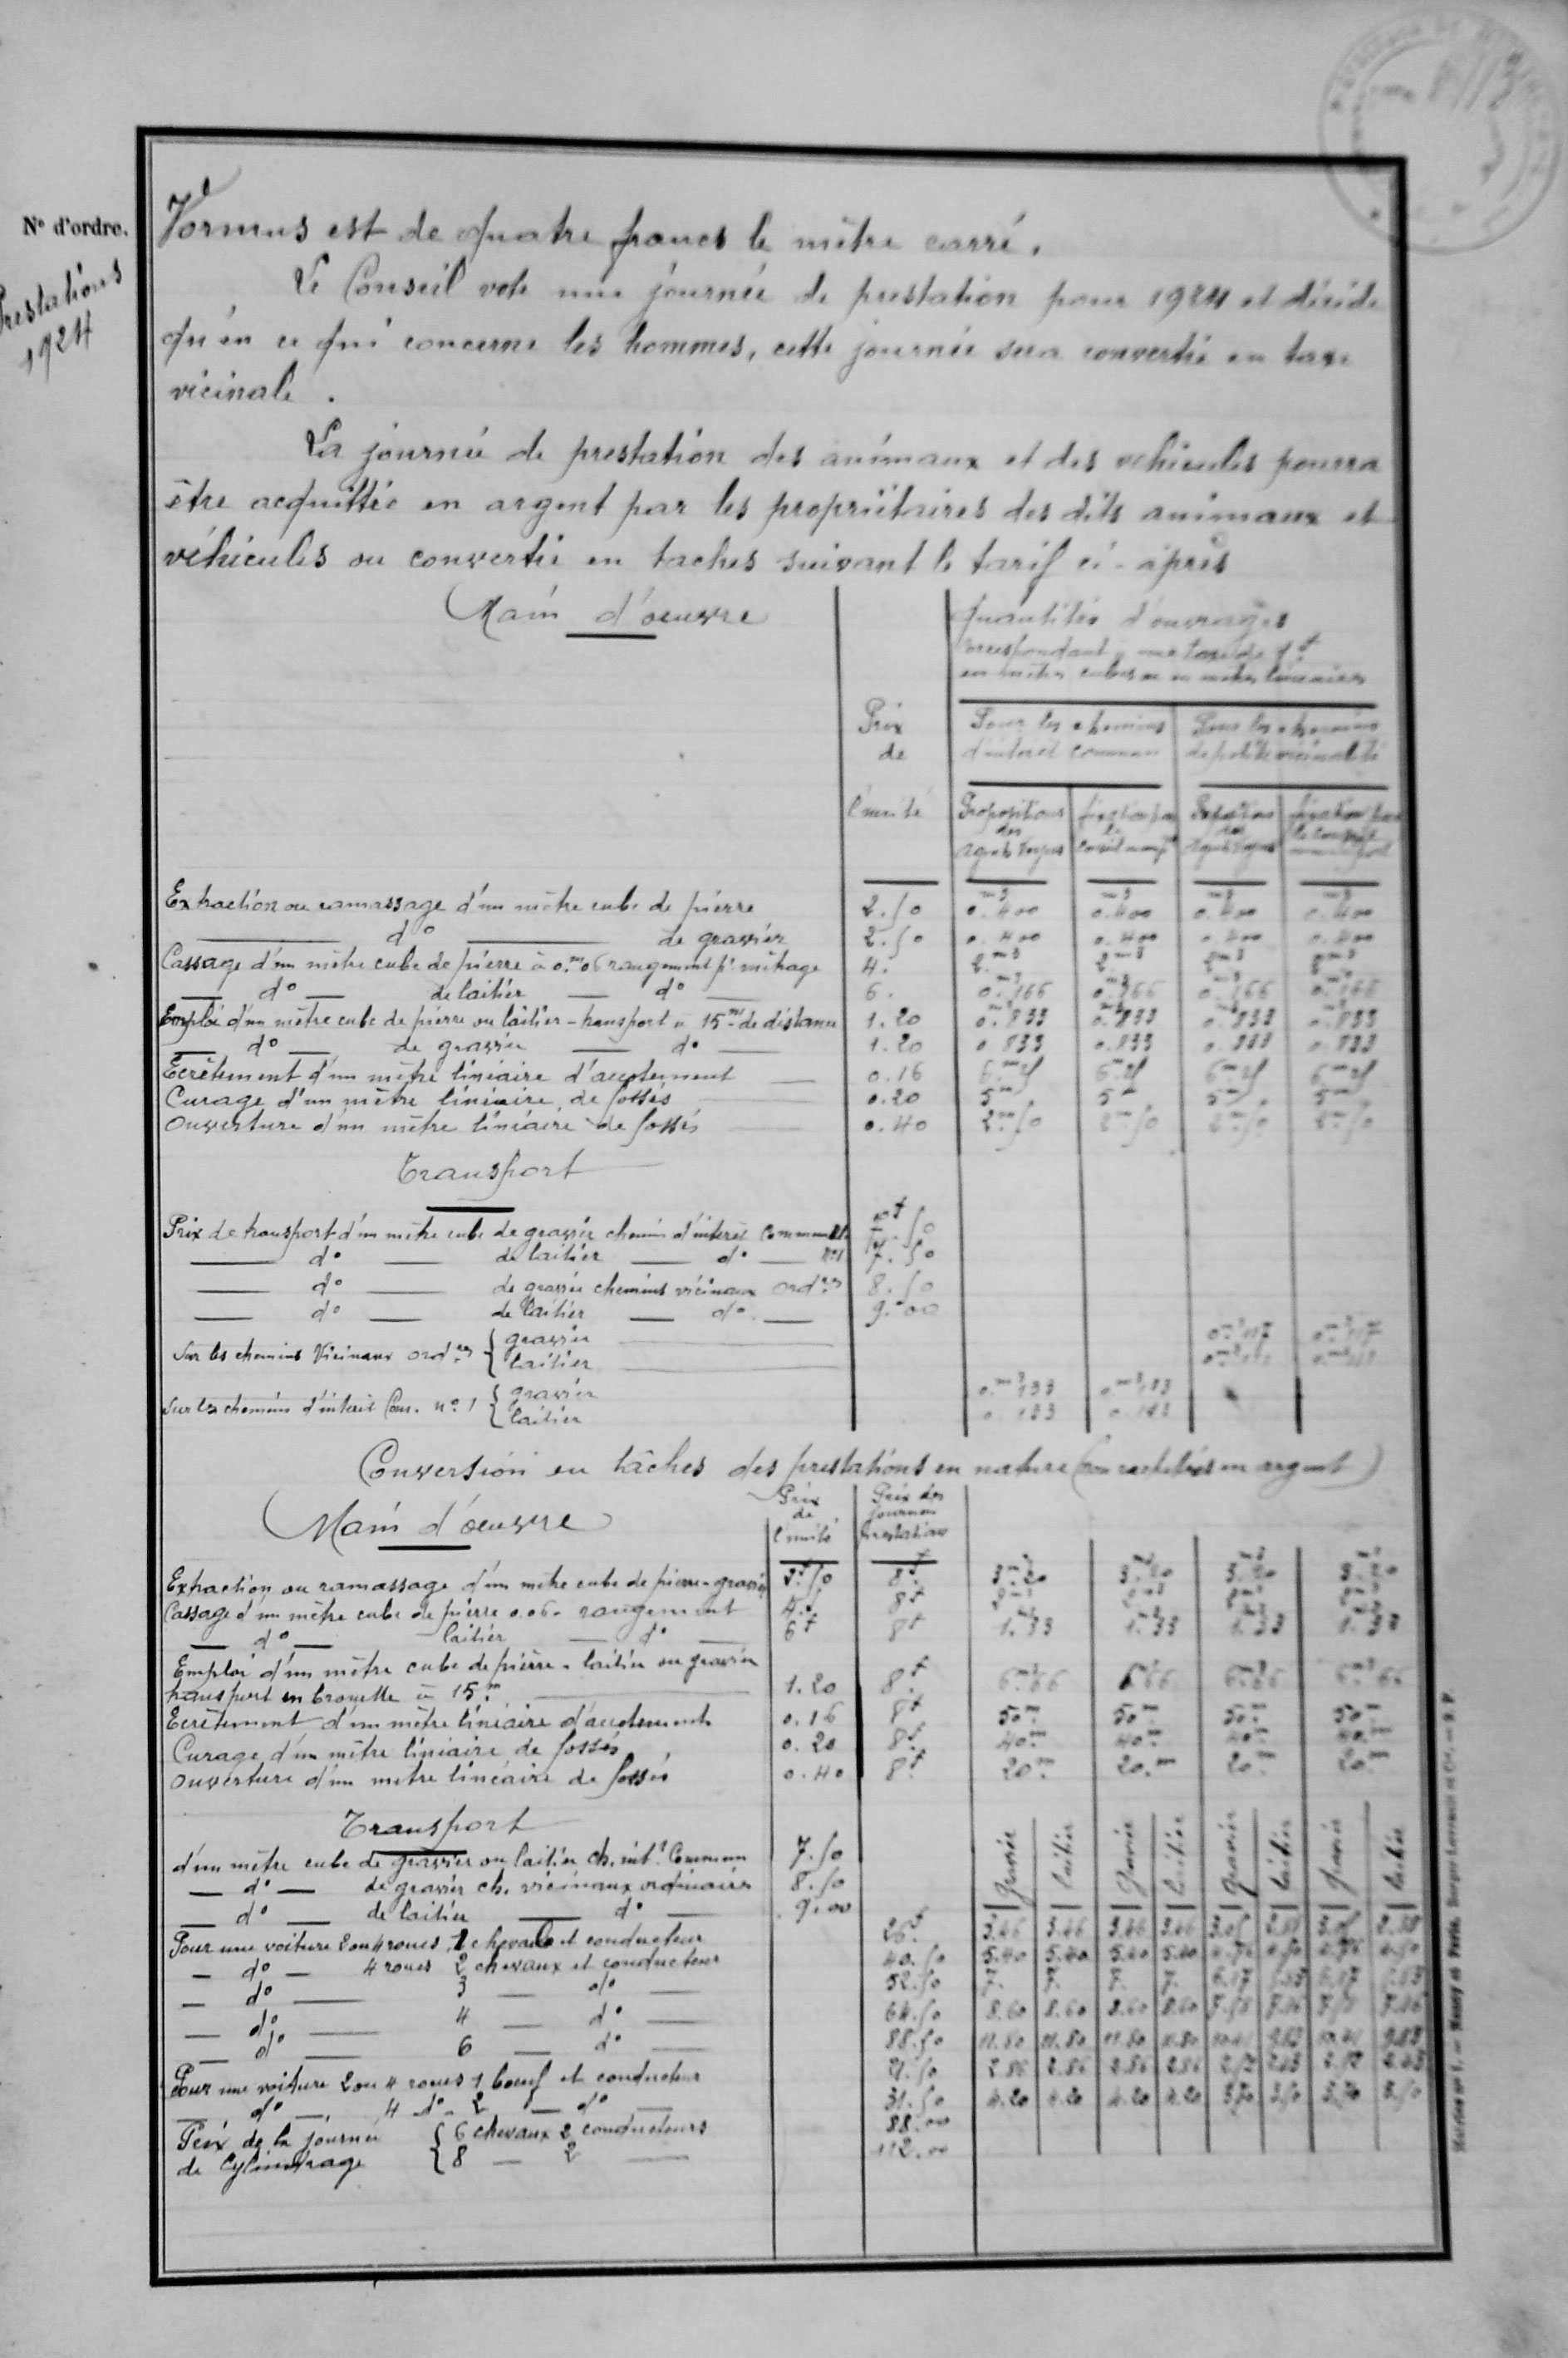 N° d'ordre.
Prestations
1924
Vormus est de quatre francs le mètre carré.
Le Conseil vote une journée de prestation pour 1924 et décide
qu'en ce qui concerne les hommes, cette journée sera convertie en taxe
vicinale.
La journée de prestation des animaux et des vehicules pourra
être acquittée en argent par les propriétaires des dits animaux et
véhicules ou convertie en taches suivant le tarif ci-après
Main d'oeuvre
Quantités d'ouvrages
correspondant à une taxe de 1f
en mètres cubes ou en mètres linéaires
Prix de l'unité
Pour les chemins d'intérêt commun
Pour les chemins de petite vicinalité
Propositions des agents voyers
fixation par le conseil munipal
Propositions des agents voyers
fixation par le conseil municipal
Extraction ou ramassage d'un mètre cube de pierre 2.50 0.m3400 0.m3400 0.m3400 0.m3400
d° de gravier 2.50 0.400 0.400 0.400 0.400
Cassage d'un mètre cube de pierre à 0.m06 rangement pr métrage 4.
d° de laitier d° 6. 0.m3166 0.m3166 0.m3166 0.m3166
Emploi d'un mètre cube de pierre ou laitier - transport à 15m de distance 1.20 0.m3833 0.m3833 0.m3833 0.m3833
d° de gravier d° 1.20 0.833 0.833 0.833 0.833
Ecrêtement d'un mètre linéaire d'accotement 0.16 6.m25 6.m25 6.m25 6.m25
Curage d'un mètre linéaire de fossés 0.20 5m 5m 5m 5m
Ouverture d'un mètre linéaire de fossés 0.40 2.m50 2.m50 2.m50 2.m50
Transport
Prix de transport d'un mètre cube de gravier chemin d'intérêt Commun
d° de laitier d° n°1 7.50
d° de gravier chemins vicinaux ordres 8.50
d° de laitier d° 9.00
Sur les chemins Vicinaux ordres { gravier 0.m3117 0.m3117
{ laitier 0.m3111 0.m3111
Sur les chemins d'intérêt Com. n°1 { gravier 0.m3133 0.m3133
{ laitier 0.133 0.133
Conversion en tâches des prestations en nature (non rachetées en argent)
Main d'oeuvre
Prix de l'unité
Prix des journées prestations
Extraction ou ramassage d'un mètre cube de pierre-gravier 2f.50 8f. 3.m320 3.m320 3.m320 3.m320
Cassage d'un mètre cube de pierre 0.06 - rangement 4f. 8f 2m3 2m3 2m3 2m3
d° laitier d° 6f 8f 1.m333 1.m333 1.m333 1.m333
Emploi d'un mètre cube de pierre - laitier ou gravier
transport en brouette à 15.m 1.20 8f. 6.m366 6.m366 6.m366 6.m366
Ecrêtement d'un mètre linéaire d'accotement 0.16 8f 50m. 50m. 50m. 50m.
Curage d'un mètre linéaire de fossés 0.20 8f. 40m. 40m. 40m. 40m.
Ouverture d'un mètre linéaire de fossés 0.40 8f. 20m. 20.m 20.m 20.m
Transport
gravier laitier gravier laitier gravier laitier gravier laitier
d'un mètre cube de gravier ou laitier ch. intt Commun 7.50
d° de gravier ch. vicinaux ordinaires 8.50
d° de laitier d° 9.00
Pour une voiture 2 ou 4 roues 1 cheval et conducteur 26f. 3.46 3.46 3.46 3.46 3.05 2.88 3.05 2.88
d° 4 roues 2 chevaux et conducteur 40.50 5.40 5.40 5.40 5.40 4.76 4.50 4.76 4.50
d° 3 d° 52.50 7. 7. 7. 7. 6.17 5.83 6.17 5.83
d° 4 d° 64.50 8.60 8.60 8.60 8.60 7.58 7.16 7.58 7.16
d° 6 d° 88.50 11.80 11.80 11.80 11.80 10.41 9.83 10.41 9.83
Pour une voiture 2 ou 4 roues 1 boeuf et conducteur 21.50 2.86 2.86 2.86 2.86
d° 4 d° 2 d° 31.50 4.20 4.20 4.20 4.20 3.70 3.50 3.70 3.50
Prix de la journée { 6 chevaux 2 conducteurs 88.00
de Cylindrage { 8 — 2 — 112.00